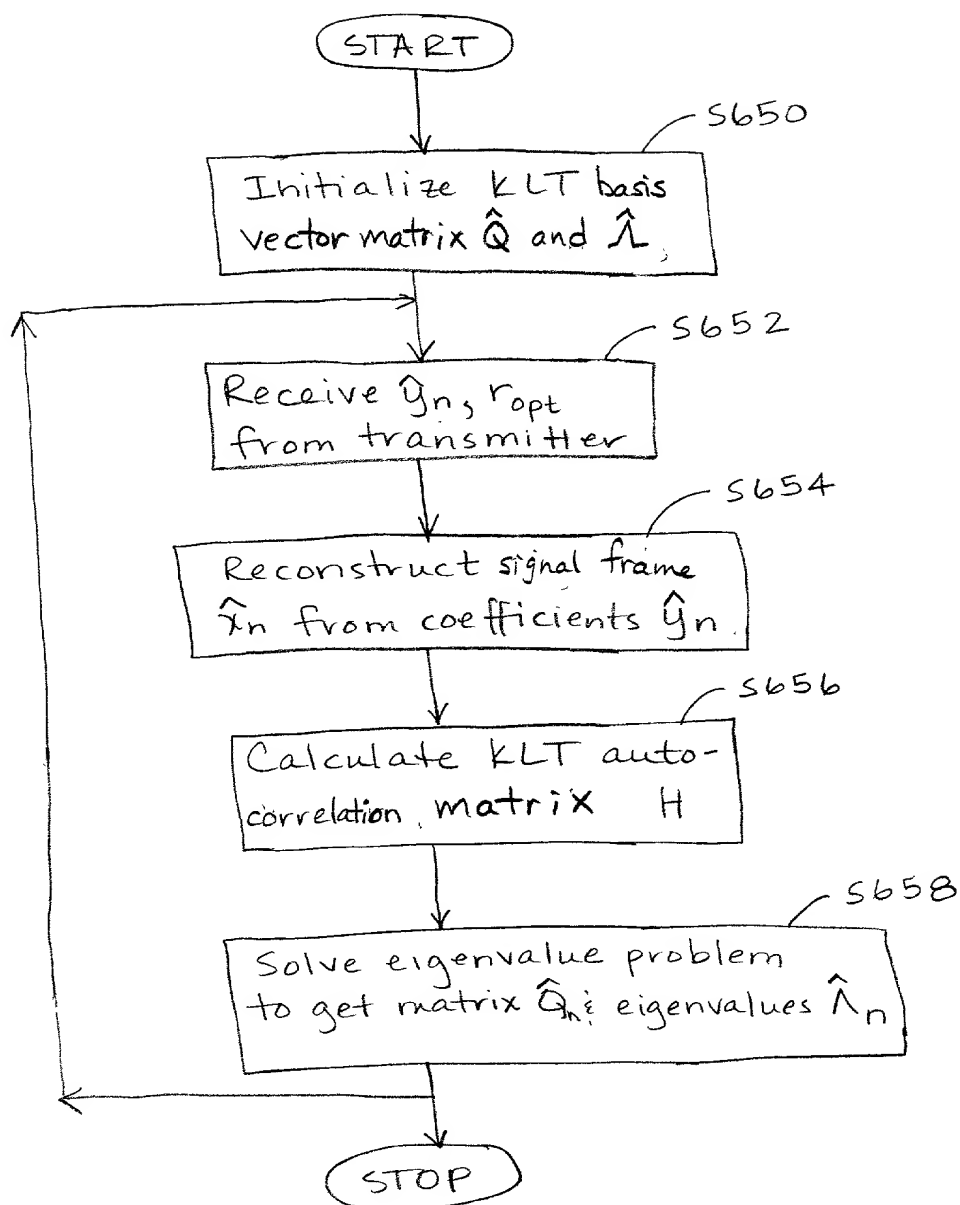 START
S650
Initialize KLT basis
vector matrix Q̂ and Λ̂,
S652
Receive ŷn, ropt
from transmitter
S654
Reconstruct signal frame
x̂n from coefficients ŷn.
S656
Calculate KLT auto-
correlation matrix H
S658
Solve eigenvalue problem
to get matrix Q̂n & eigenvalues Λ̂n
STOP